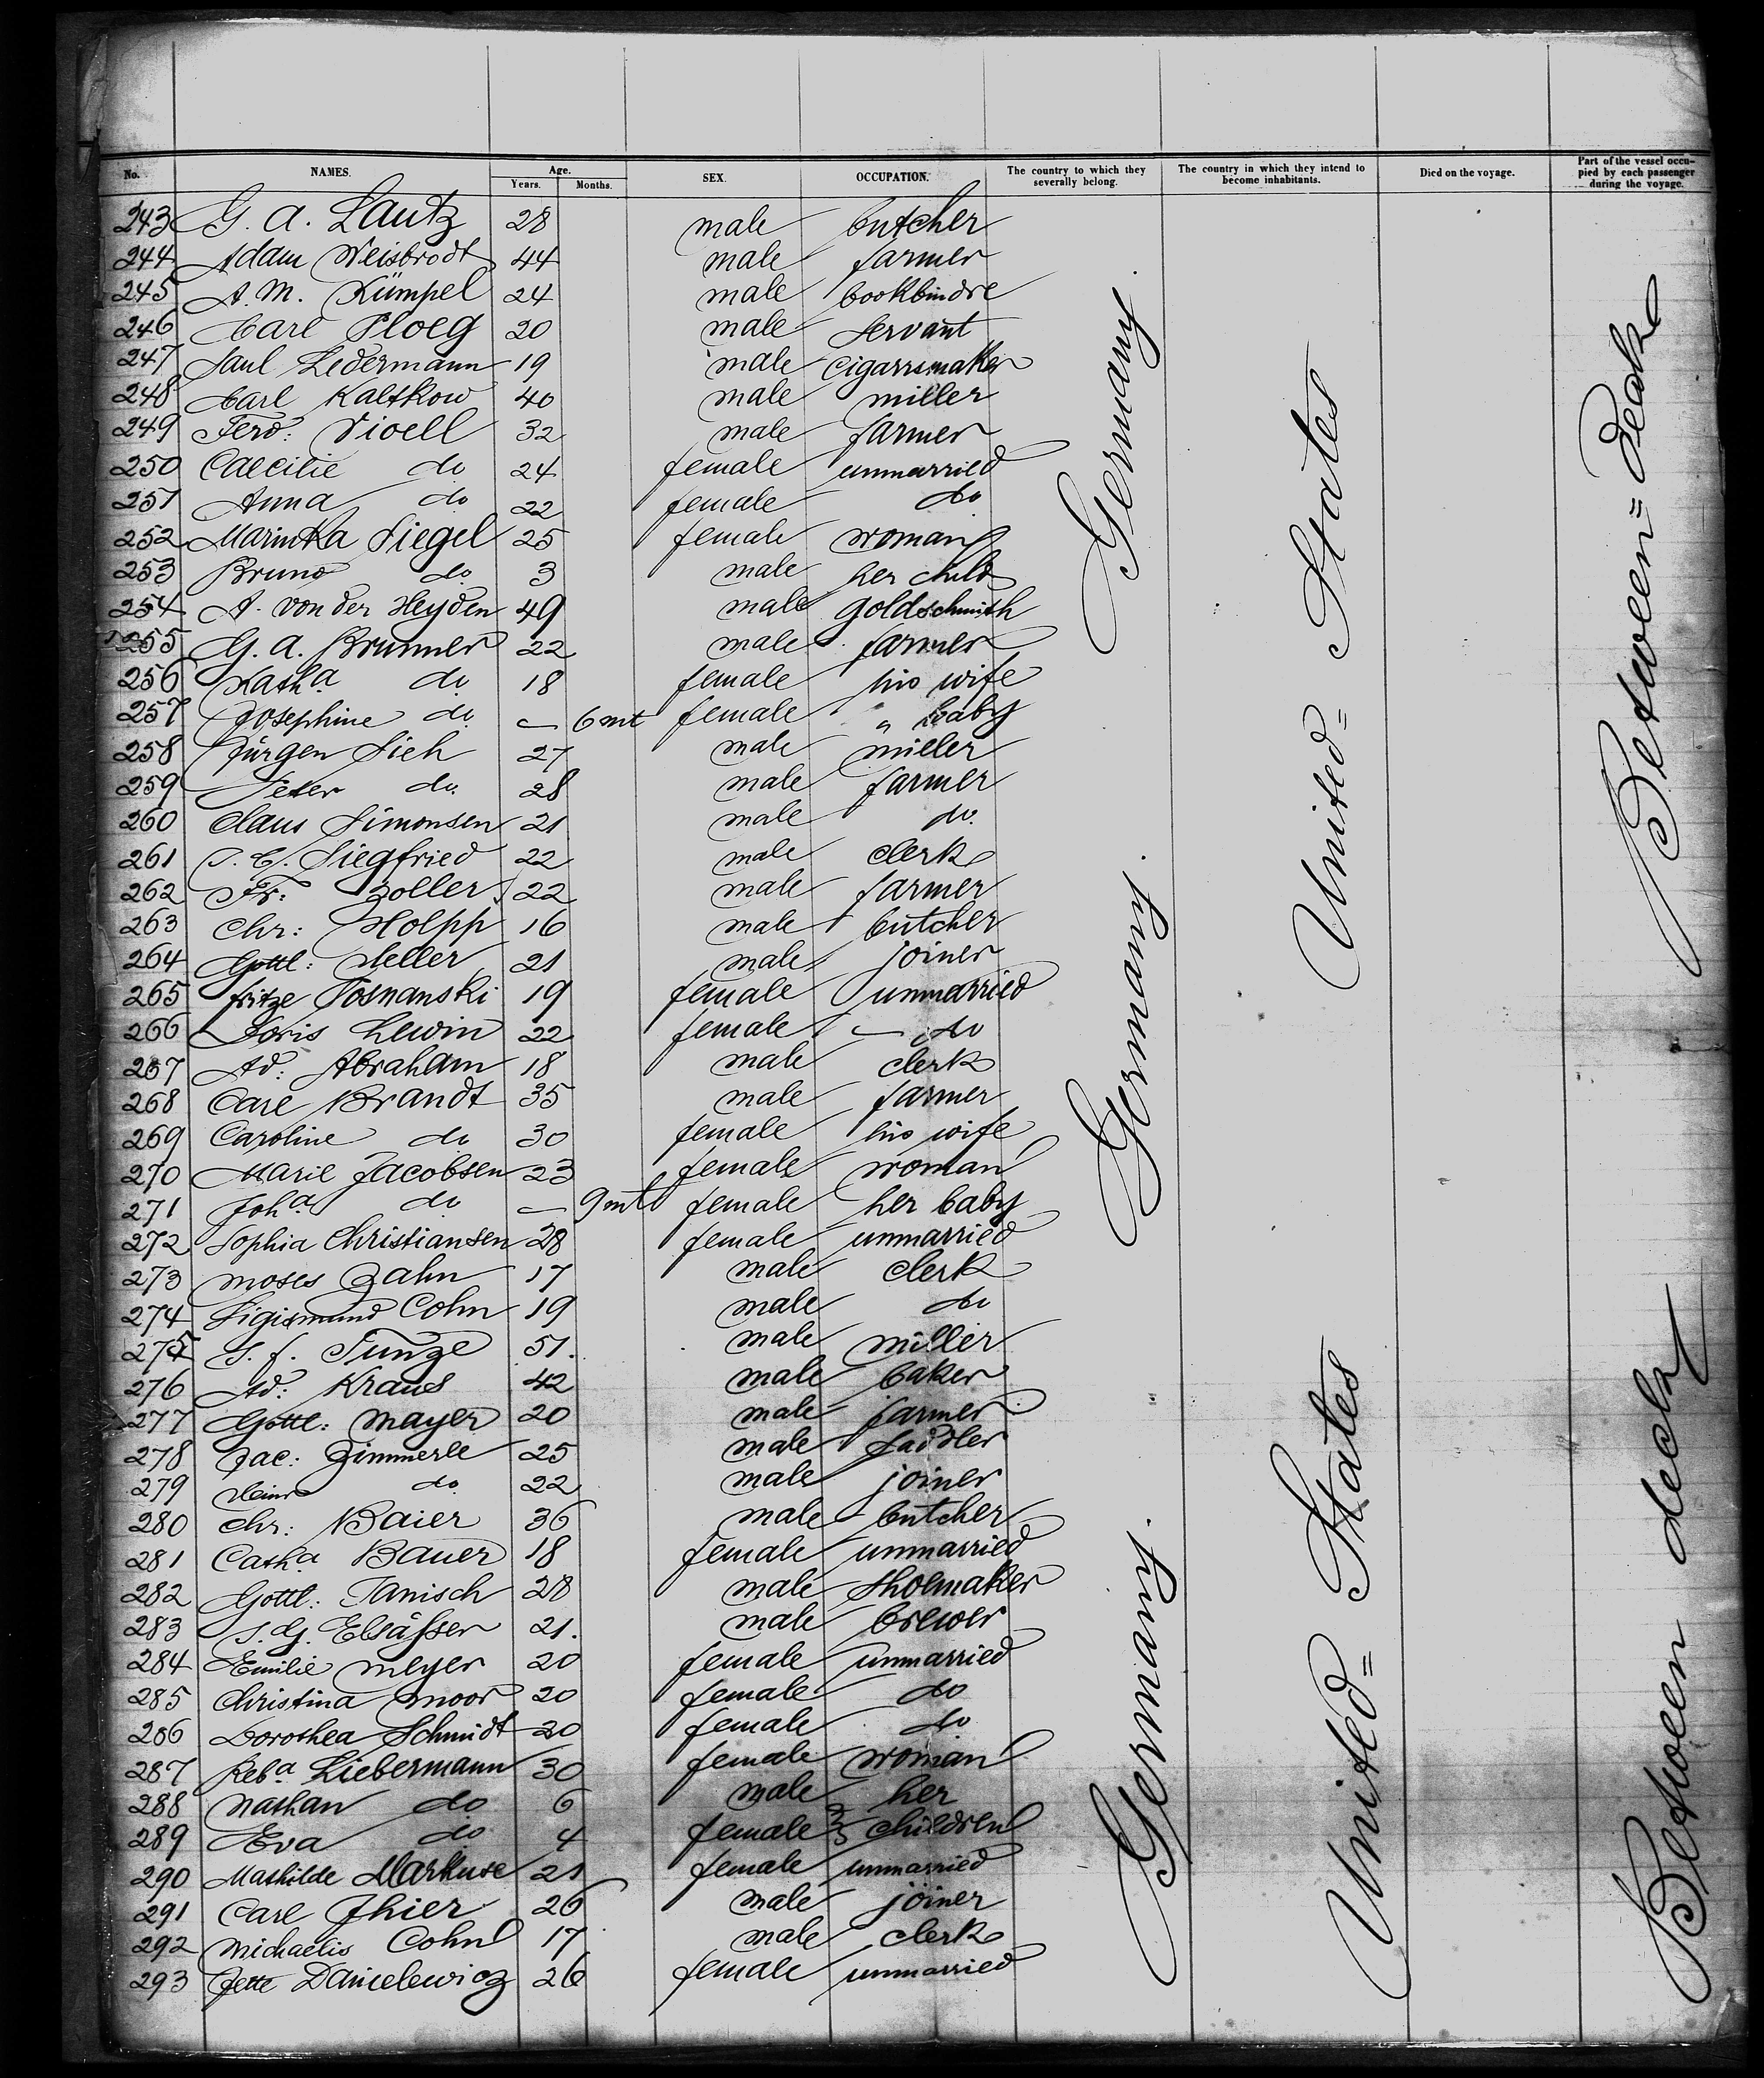 No. NAMES. Age. Years. Months. SEX. OCCUPATION. The country to which they severally belong. The country in which they intend to become inhabitants. Died on the voyage. Part of the vessel occupied by each passenger during the voyage.
243 G. A. Lautz 28 male butcher
244 Adam Weisbrodt 44 male farmer
245 A. M. Kümpel 24 male bookbindre
246 Carl Ploeg 20 male servant
247 Paul Ledermann 19 male cigarrsmaker
248 Carl Kaltkow 40 male miller
249 Ferd: Vioell 32 male farmer
250 Caecilie do 24 female unmarried
251 Anna do 22 female do
252 Marinka Siegel 25 female woman
253 Bruno do 3 male her child
254 A. von der Heyden 49 male goldschmith
255 G. A. Brunner 22 male farmer
256 Katha do 18 female his wife
257 Josephine do — 6 mt female " baby
258 Jürgen Sieh 27 male miller
259 Peter do. 28 male farmer
260 Claus Simonsen 21 male do.
261 J. C. Siegfried 22 male clerk
262 Fr: Zoller 22 male farmer
263 Chr: Holpp 16 male butcher
264 Gottl: Heller 21 male joiner
265 Fritze Posnanski 19 female unmarried
266 Doris Lewin 22 female — do
267 Ad: Abraham 18 male clerk
268 Carl Brandt 35 male farmer
269 Caroline do 30 female his wife
270 Marie Jacobsen 23 female woman
271 Joha do — 9 mt female her baby
272 Sophia Christiansen 28 female unmarried
273 Moses Zahn 17 male clerk
274 Sigismund Cohn 19 male do
275 J. F. Tunze 51. male miller
276 Ad: Kraus 42 male baker
277 Gottl: Mayer 20 male farmer
278 Jac: Zimmerle 25 male saddler
279 Heinr do 22 male joiner
280 Chr: Baier 36 male butcher
281 Catha Bauer 18 female unmarried
282 Gottl: Janisch 28 male shoemaker
283 J. G. Elsäßer 21. male brewer
284 Emilie Meyer 20 female unmarried
285 Christina Moor 20 female do
286 Dorothea Schmidt 20 female do
287 Reba Liebermann 30 female woman
288 Nathan do 6 male her
289 Eva do 4 female children
290 Mathilde Markuse 21 female unmarried
291 Carl Thier 26 male joiner
292 Michaelis Cohn 17 male clerk
293 Jette Danielewicz 26 female unmarried
Germany.
Germany.
Germany.
United= States
United= States
Between= Decke
Between deck